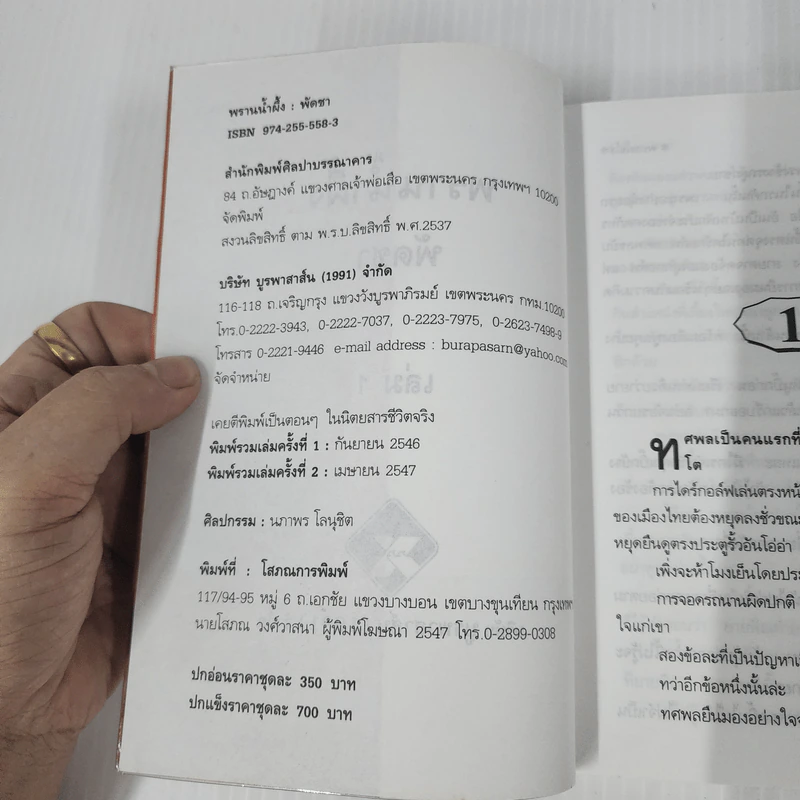 พรานน้ำผึ้ง : พัดชา
ISBN 974-255-558-3
สำนักพิมพ์ศิลปาบรรณาคาร
84 ถ.อัษฎางค์ แขวงศาลเจ้าพ่อเสือ เขตพระนคร กรุงเทพฯ 10200
จัดพิมพ์
สงวนลิขสิทธิ์ ตาม พ.ร.บ.ลิขสิทธิ์ พ.ศ.2537
บริษัท บูรพาสาส์น (1991) จำกัด
116-118 ถ.เจริญกรุง แขวงวังบูรพาภิรมย์ เขตพระนคร กทม.10200
โทร.0-2222-3943, 0-2222-7037, 0-2223-7975, 0-2623-7498-9
โทรสาร 0-2221-9446 e-mail address : burapasarn@yahoo.com
จัดจำหน่าย
เคยตีพิมพ์เป็นตอนๆ ในนิตยสารชีวิตจริง
พิมพ์รวมเล่มครั้งที่ 1 : กันยายน 2546
พิมพ์รวมเล่มครั้งที่ 2 : เมษายน 2547
ศิลปกรรม : นภาพร โลนุชิต
พิมพ์ที่ : โสภณการพิมพ์
117/94-95 หมู่ 6 ถ.เอกชัย แขวงบางบอน เขตบางขุนเทียน กรุงเทพฯ
นายโสภณ วงศ์วาสนา ผู้พิมพ์โฆษณา 2547 โทร.0-2899-0308
ปกอ่อนราคาชุดละ 350 บาท
ปกแข็งราคาชุดละ 700 บาท
1
ทศพลเป็นคนแรกที่
โต
การไดร์กอล์ฟเล่นตรงหน้
ของเมืองไทยต้องหยุดลงชั่วขณะ
หยุดยืนดูตรงประตูรั้วอันโอ่อ่า
เพิ่งจะห้าโมงเย็นโดยประ
การจอดรถนานผิดปกติ
ใจแก่เขา
สองข้อละที่เป็นปัญหา
ทว่าอีกข้อหนึ่งนั้นล่ะ
ทศพลยืนมองอย่างใจจ